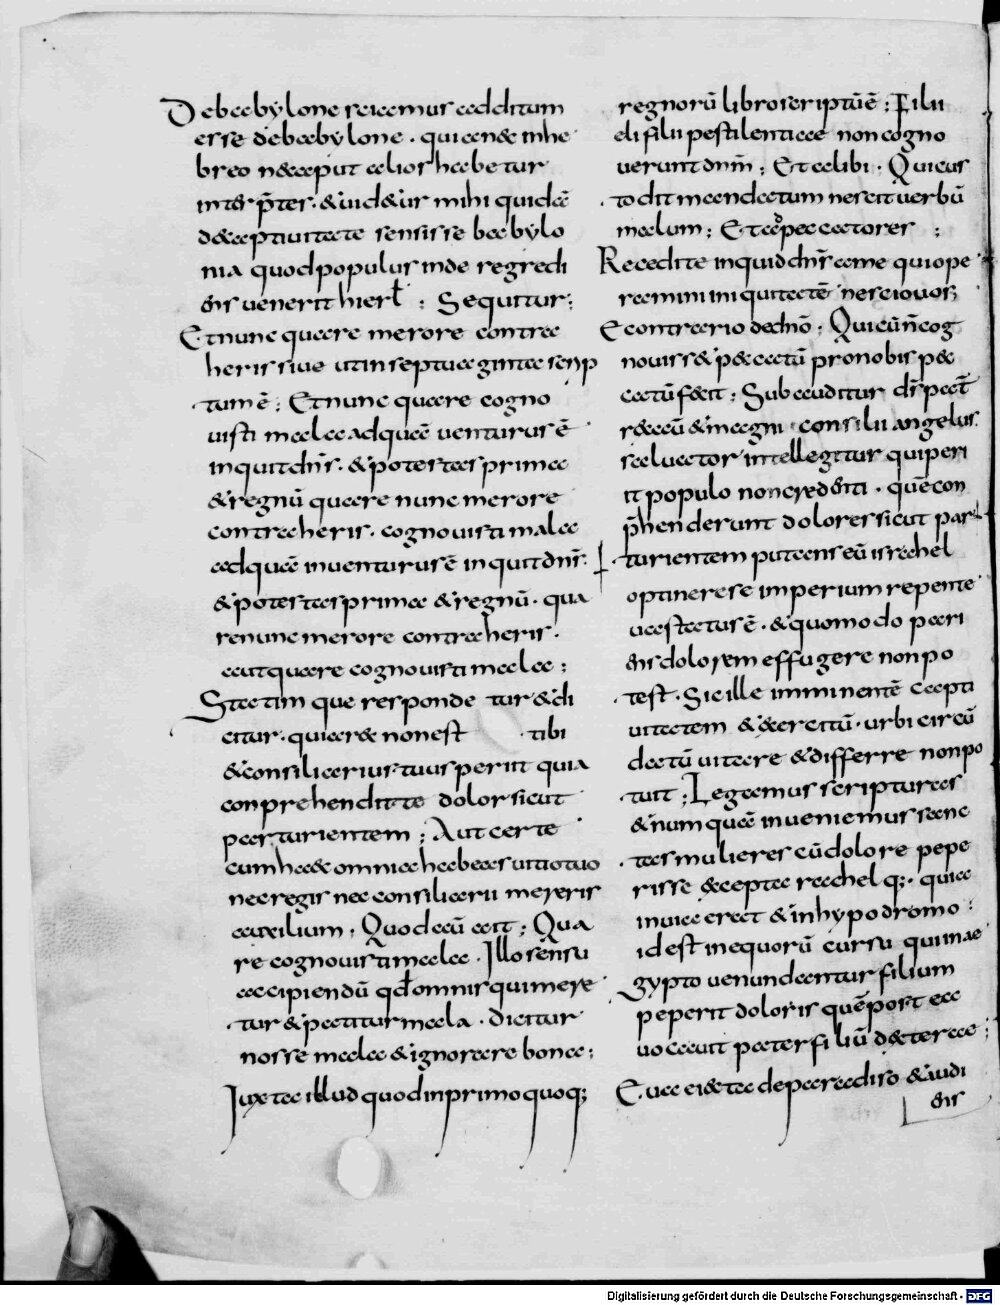 De babylone sciamus additum
esse debabylone · quia in & inhe
breo n&aput alios habetur
int&rp̄tes · & uid&ur mihi quidā
d&captiuitate sensisse babylo
nia quod populus inde regredi
ens uenerit hierł : Sequitur;
Et nunc quare merore contra
heris siue ut in septuaginta scrip
tum ē ; Et nunc quare cogno
uisti mala ad quā uenturus ē
inquit dn̄s · & potestas prima
& regnū quare nunc merore
contraheris · cognouisti mala
ad quā inuenturus ē inquit dn̄s ·
& potestas prima & regnū · qua
re nunc merore contraheris ·
aut quare cognouisti mala ;
Statim que responde tur & di
citur · quia r& non est tibi
& consiliarius tuus periit quia
conprehendit te dolor sicut
parturientem ; Aut certe
cum ha& omnia habeas uitio tuo
nec regis nec consiliarii mereris
auxilium ; Quod aū ait ; Qua
re cognouisti mala · Illo sensu
accipiendū qđ omnis qui mere
tur & patitur mala · dicitur
nosse mala & ignorare bona ;
Juxta illud quod in primo quoq;
regnorū libro scriptū ē ; Filii
eli filii pestilentiae non cogno
uerunt dn̄m ; Et alibi · Qui cus
todit mandatum nescit uerbū
malum ; Et ad peccatores ;
Recedite inquid dn̄s a me qui ope
ramini iniquitatē nescio uos ;
E contrario de dn̄o ; Qui cū n̄ cog
nouiss& p&catū pro nobis p&
catū fecit ; Subauditur
r&eū & magni consilii angelus
saluator intellegitur qui peri
it populo non credenti · quē con
p̄henderunt dolores sicut par
turientem putans eū israhel
optinere se imperium repente
uastatus ē · & quomodo pari
ens dolorem effugere non po
test · Sic ille imminentē capti
uitatem & exercitū · urbi circū
datū uitare & differre non po
tuit ; Legamus scripturas
& numquā inueniemus sanc
tas mulieres cū dolore pepe
risse excepta rachel q; · quia
in uia erat & in hypodromo :
id est in equorū cursu qui in ae
gypto uenundantur filium
peperit doloris quē post ea
uocauit pater filiū dexterae ;
Euae eiecta de paradiso & audi
ens
Digitalisierung gefördert durch die Deutsche Forschungsgemeinschaft - DFG